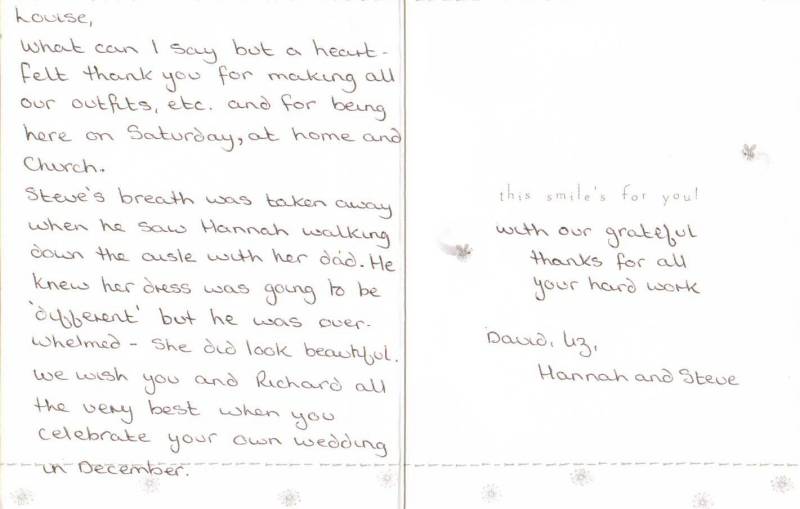 Louise,
What can I say but a heart-
felt thank you for making all
our outfits, etc. and for being
here on Saturday, at home and
Church.
Steve's breath was taken away
when he saw Hannah walking
down the aisle with her dad. He
knew her dress was going to be
'different' but he was over-
whelmed - She did look beautiful.
We wish you and Richard all
the very best when you
celebrate your own wedding
in December.
this smile's for you!
with our grateful
thanks for all
your hard work
David, Liz,
Hannah and Steve